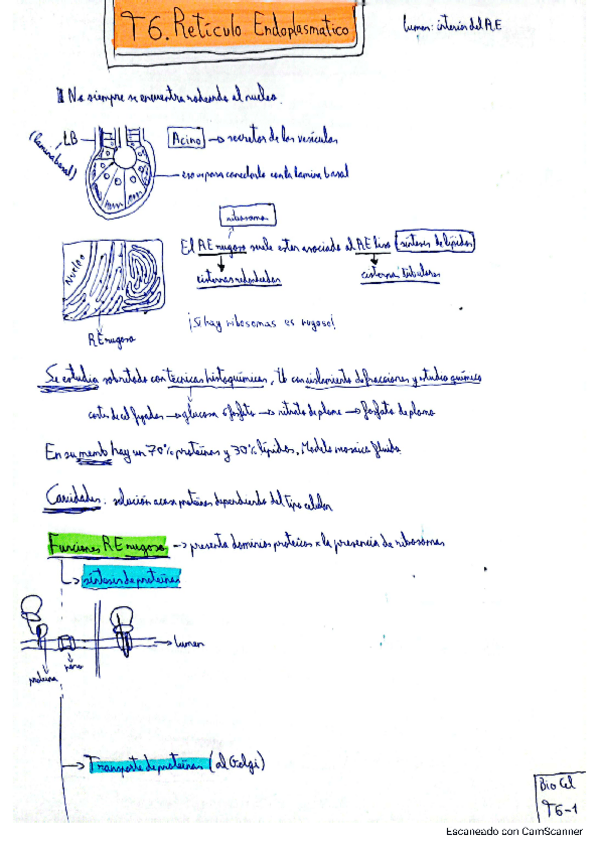 T6. Retículo Endoplasmático
Lumen: interior del RE
No siempre se encuentra rodeando al nucleo.
LB
(lamina basal)
Acino → secretor de las vesículas
conectarlo con la lamina basal
ribosomas
El RE rugoso suele estar asociado al RE liso (síntesis de lípidos)
cisternas redondeadas
cisternas tubulares
Nucleo
RE rugoso
¡Si hay ribosomas es rugoso!
Se estudia sobretodo con técnicas histoquímicas, con aislamiento de fracciones y estudio químico
cortes de cel fijadas → glucosa 6 fosfato → nitrato de plomo → fosfato de plomo
En su memb hay un 70% proteínas y 30% lípidos, Modelo mosaico fluido
Cavidades: solución acuosa proteínas dependiendo del tipo celular
Funciones RE rugoso → presenta dominios proteicos x la presencia de ribosomas
síntesis de proteínas
lumen
poro
proteina
Transporte de proteínas (al Golgi)
Bio Cel
T6-1
Escaneado con CamScanner